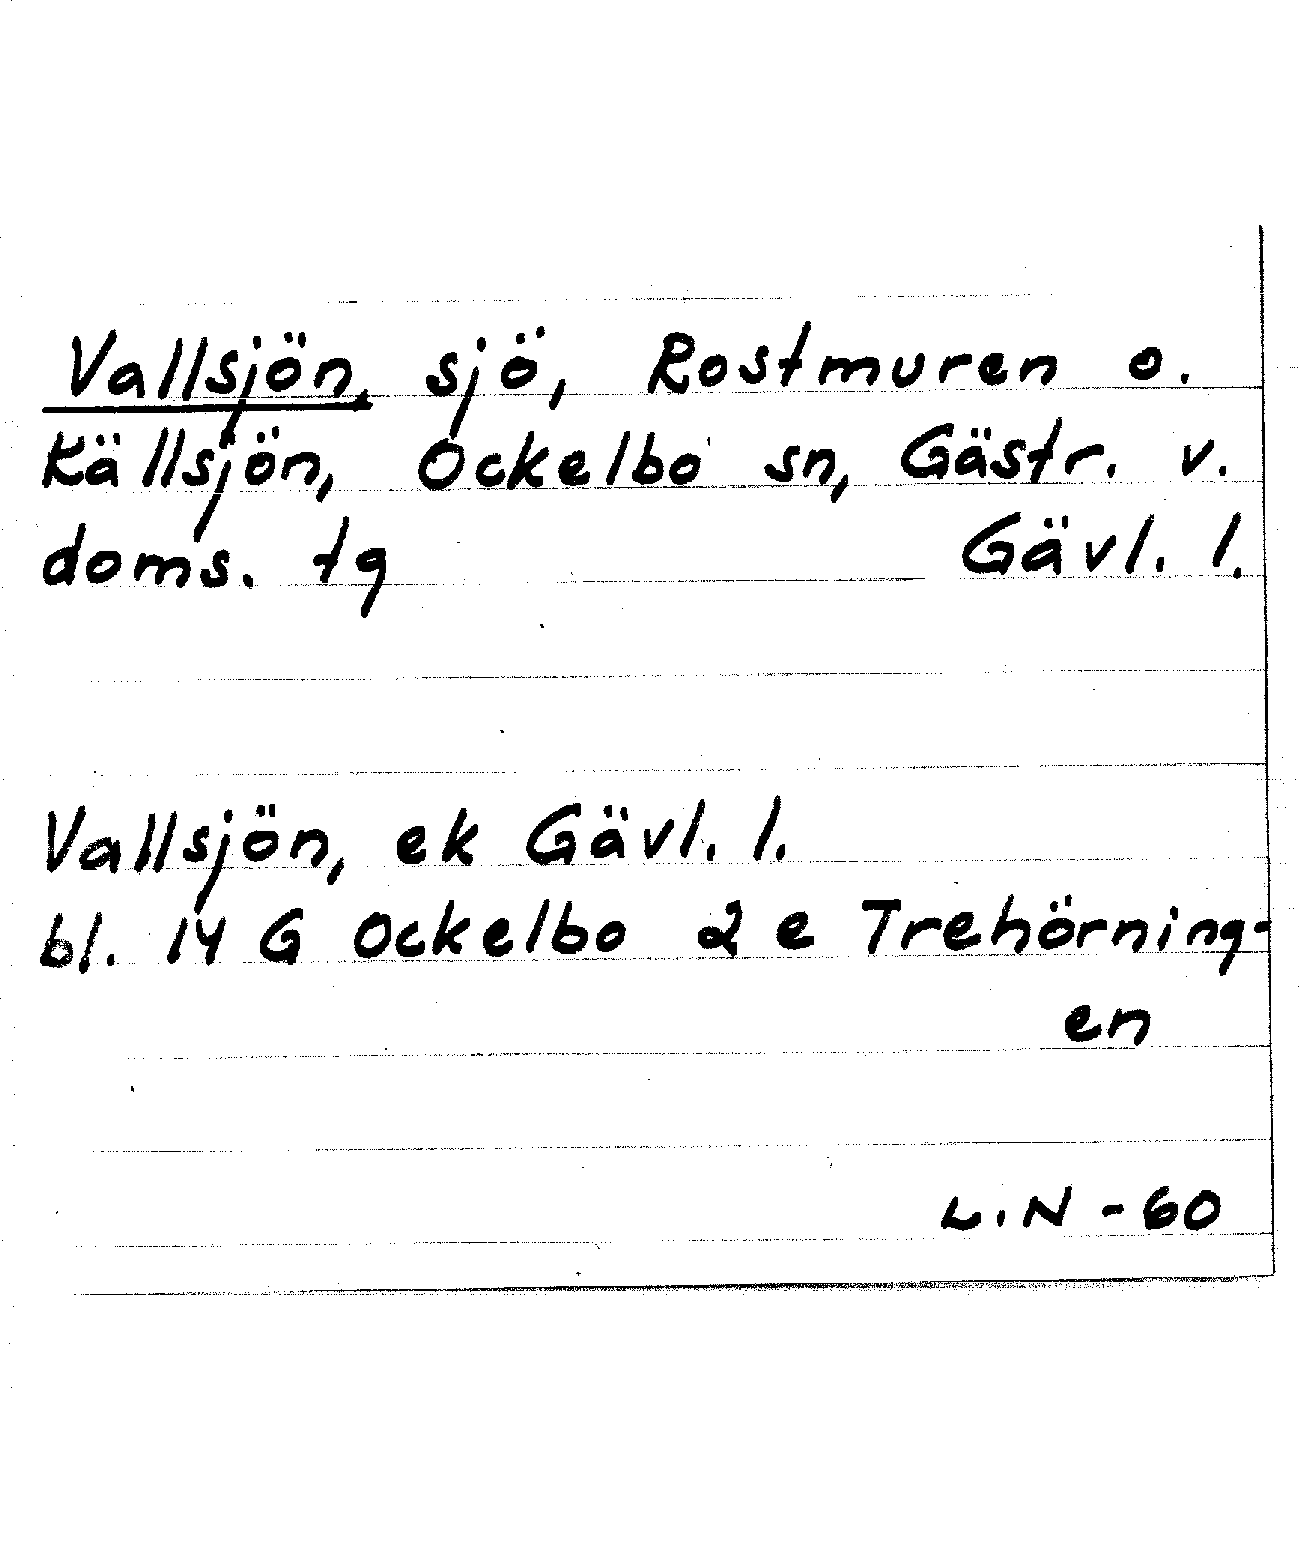 Vallsjön, sjö, Rostmuren o.
Källsjön, Ockelbo sn, Gästr. v.
doms. tg Gävl. l.
Vallsjön, ek Gävl. l.
bl. 14 G Ockelbo 2 e Trehörning-
en
L.N - 60